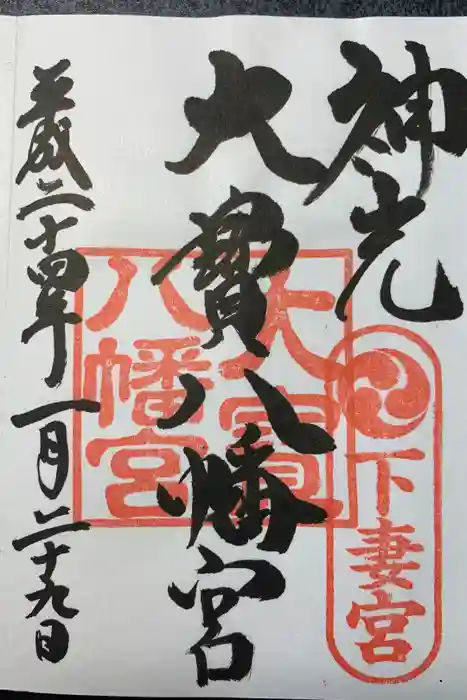 神光
大寳八幡宮
平成二十四年一月二十九日
大寳
八幡宮
下妻宮